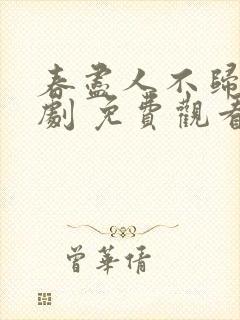 春盡人不歸
劇 免費觀看
曾華倩